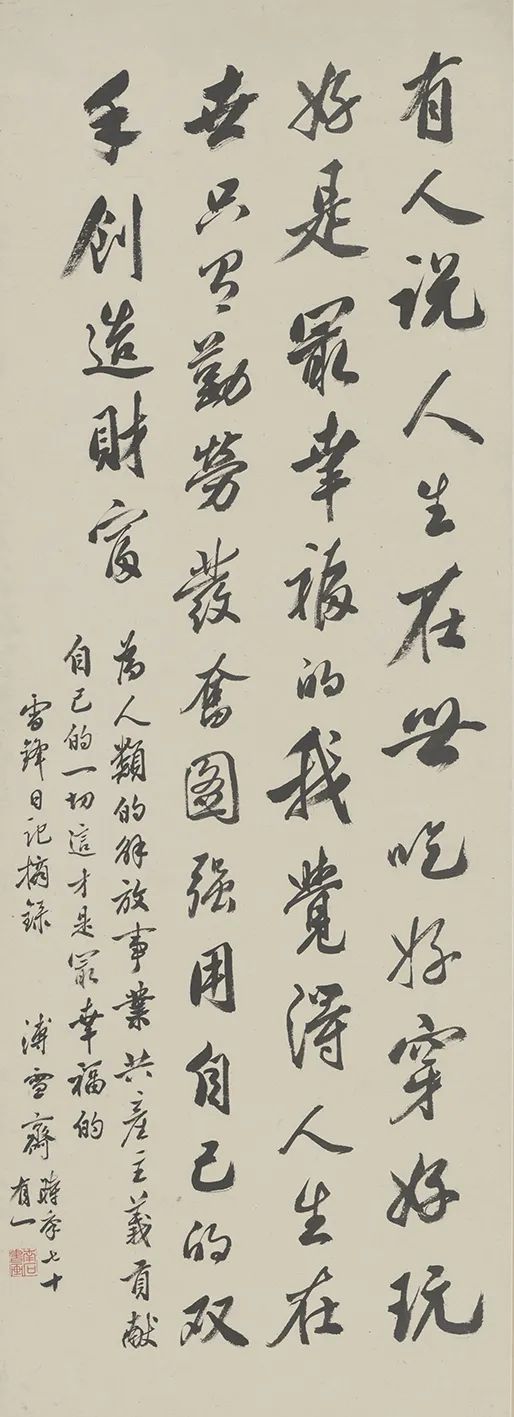 有人说人生在世吃好穿好玩
好是最幸福的我覺得人生在
世只有勤勞發奮图强用自己的双
手創造財富
為人類的解放事業共產主義貢献
自己的一切這才是最幸福的
雷锋日记摘錄
溥雪齋時年七十
有一